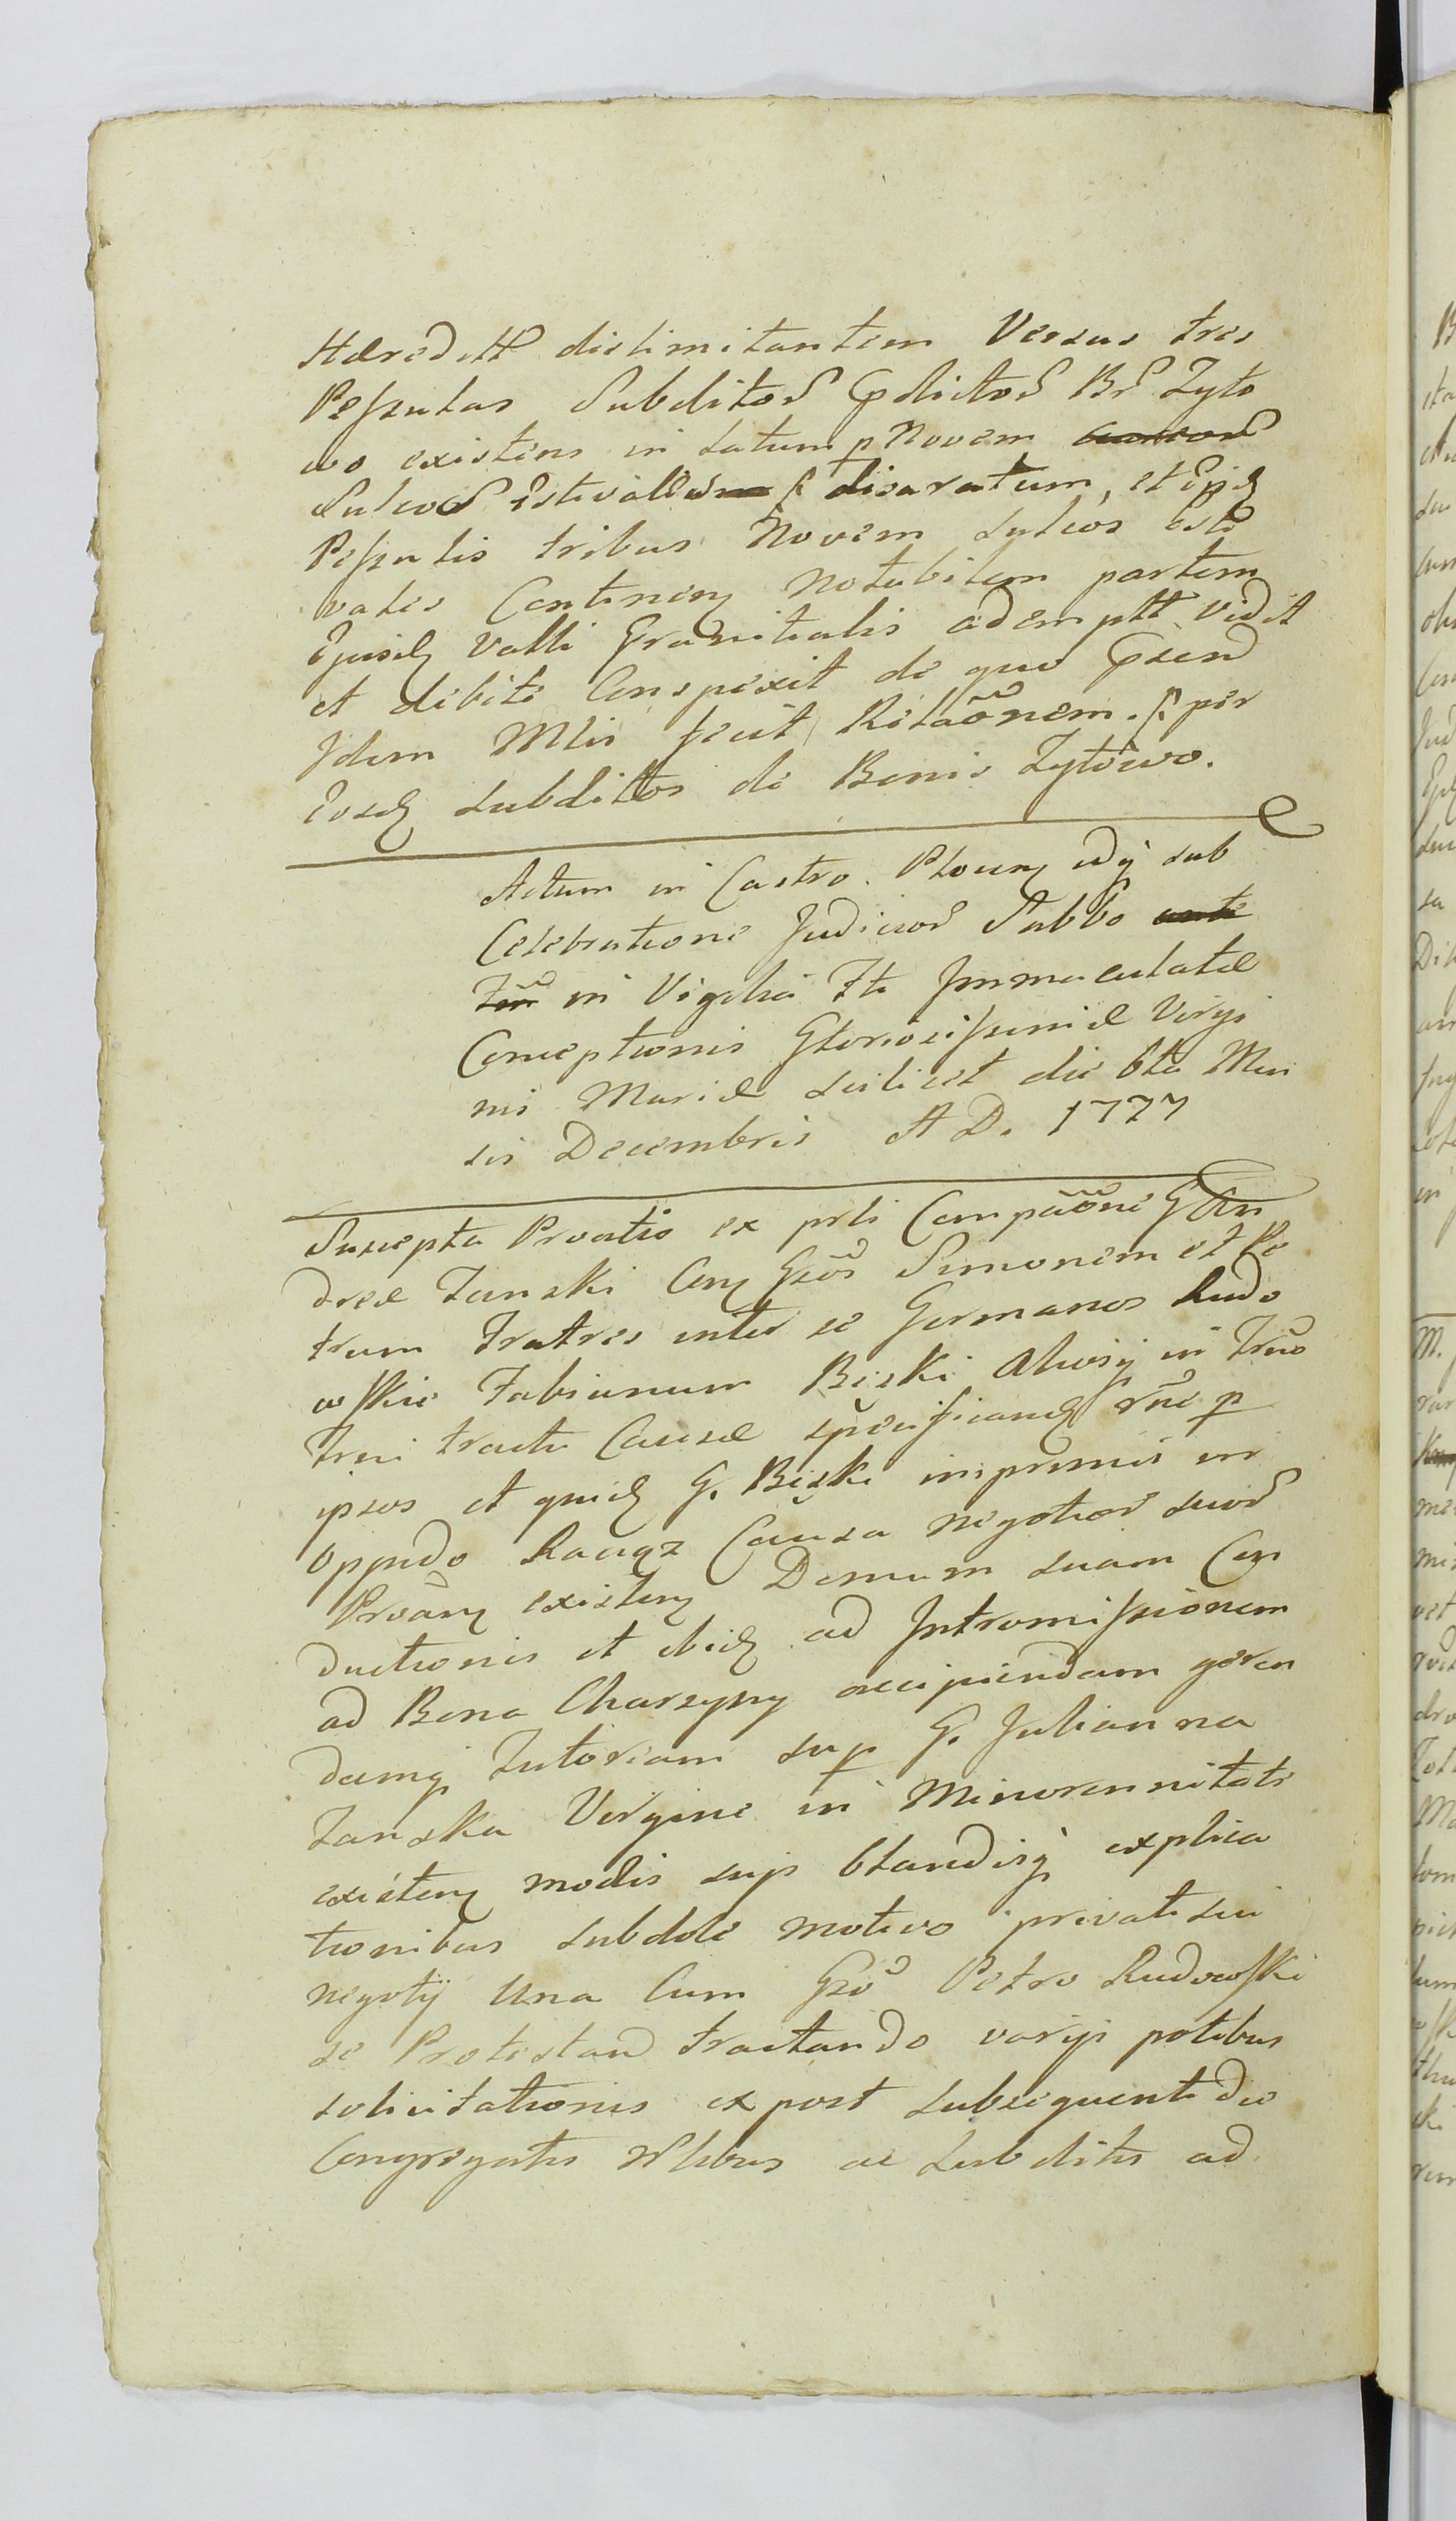 Hæreditt distimitantem Versus tres
Peszulas Subditor pdictor Br Zyto
wo existens in latum p Novem
Sulcos Estivales p disaratum, et
Peszulis tribus Novem sulcos Esti
vales Continen notabilem partem
Ejusd Valli Granitialis ademptt vidit
et debite Conspexit de quo
Idem Mlis fecit Relaõnem. p per
Eosd subdittos de Bonis Zytowo.
Actum in Castro Plocen
sub
Celebratione Judicior Sabbo ante
in Vigilia Fti Immaculatæ
Conceptionis Gloriosissimæ Virgi
nis Mariæ scilicet die 6ta Men
sis Decembris A D. 1777
Suscepta Prvatio ex prti Compaõne G An
dreæ Zanski Con Gsos Simonem et Pe
trum Fratres inter se Germanos Rudo
wskie Fabianum Bęski
in
tractu Causæ specificand rne p
ipsos et quid G. Bęski inprimis in
Oppido Raciąz Causa negotior suor
existen Domum suam Con
ductionis et ibid ad Intromissionem
ad Bona Charzyny accipiendam geren
damq Tutoriam sup G. Julianna
Zanska Virgine in Minorennitate
existen modis suis blandisq explica
tionibus subdole motivo privati sui
negotij Una Cum Gso Petro Rudowski
se Protestand tractando varijs
solicitationis ex post subsequenti die
Congregatis Nlibus ac Subditis ad